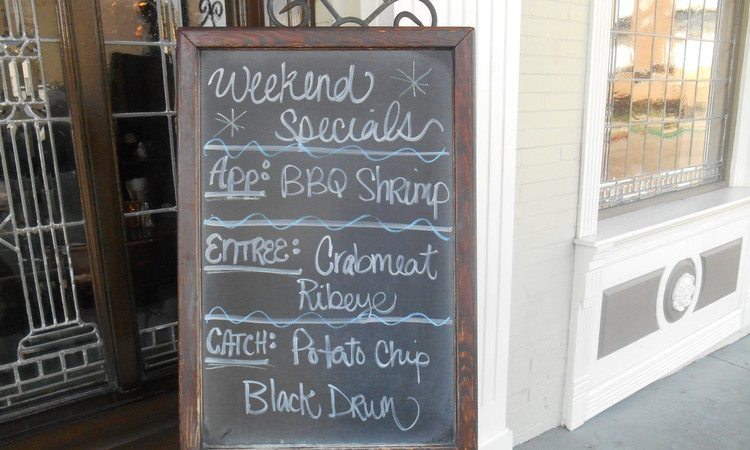 Weekend
Specials
App: BBQ Shrimp
ENTREE: Crabmeat
Ribeye
CATCH: Potato Chip
Black Drum